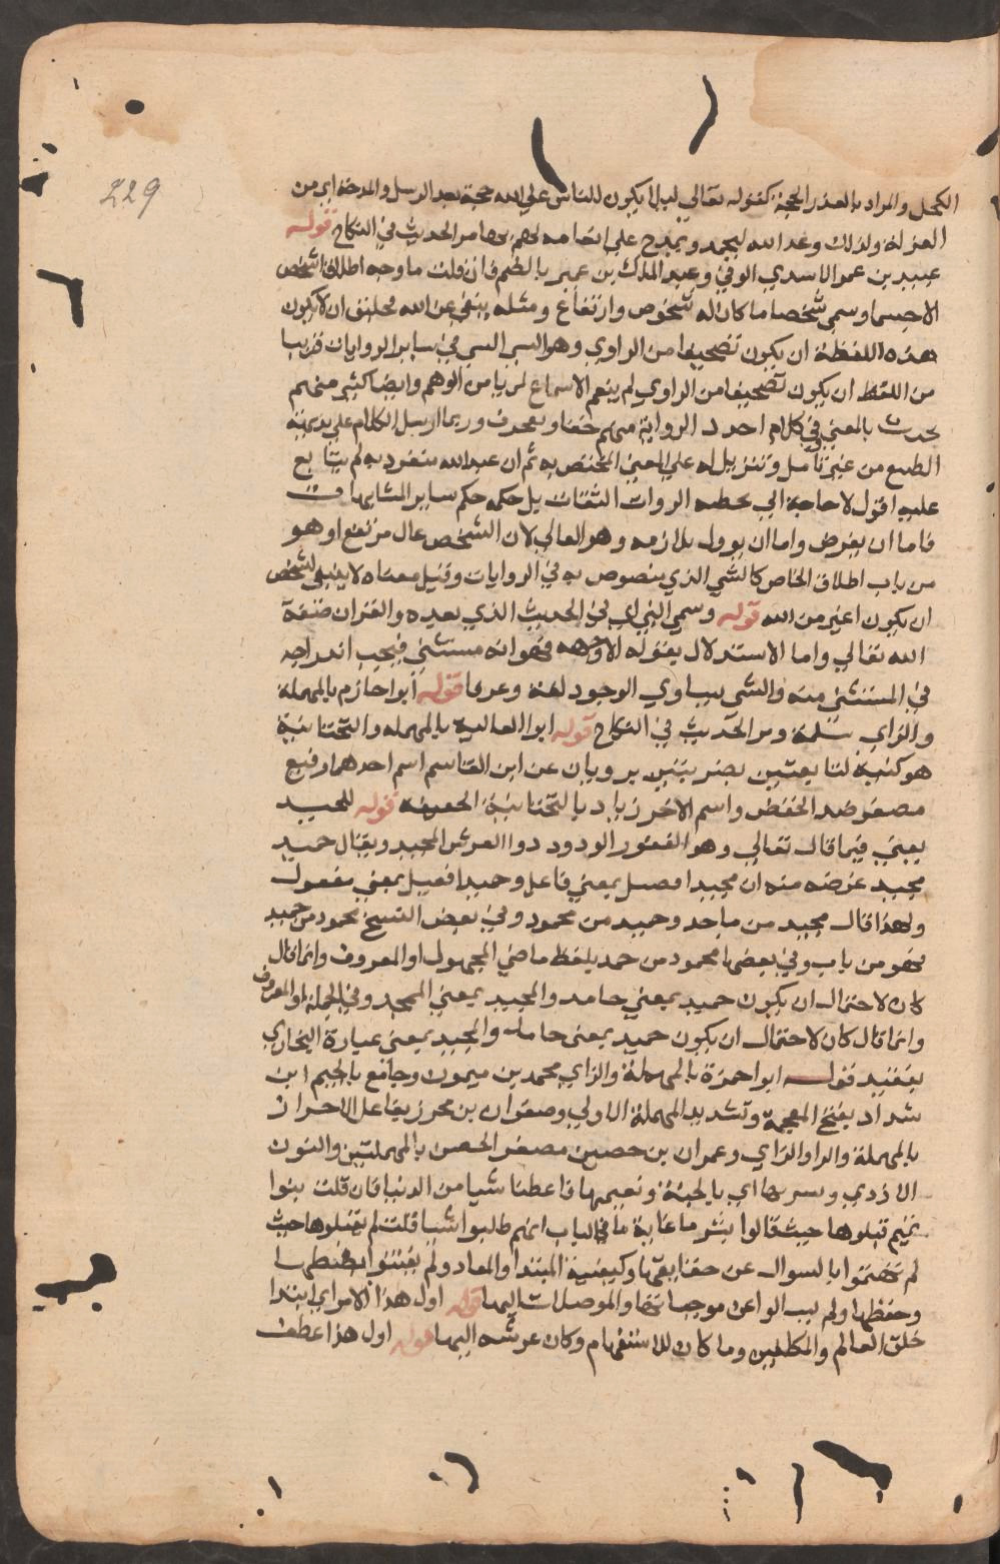 229
الكحل والمراد بالعذر الحجة كقوله تعالى ليلا يكون للناس على الله حجة بعد الرسل والمدحة اي من
العزلة ولذلك وعد الله ليحمد ويمدح على مر الحديث في النكاح قوله
عبيد بن عمر الاسدي الوفي وعبد الملك بن عمير بالضم فان قلت ما وجه اطلاق الشخص
الا جسما وسمي شخصا ما كان له شخوص وارتفاع ومثله ينفى عن الله فخليق ان لا يكون
هذه اللفظة ان يكون تصحيفا من الراوي وهو السي السي في ساير الروايات قريبا
من اللفظ ان يكون تصحيفا من الراوي لم ينعم الاسماع لم يامن الوهم وايضا كثير منهم
يحدث بالمعنى في كلام احد الرواية منهم جفا وتعجرف وربما ارسل الكلام على بديهية
الطبع من غير تامل وتنزيل له على المعنى المختص به ثم ان عبد الله متفرد به لم يتابع
عليه اقول لا حاجة الى تخطية الروات الثقات بل حكمه حكم ساير المتشابهات
فاما ان يفوض واما ان يوول بلازمه وهو العالي لان الشخص عال مرتفع او هو
من باب اطلاق الخاص كالشي الذي منصوص به في الروايات وقيل معناه لا ينبغي لشخص
ان يكون اغير من الله قوله وسمى النبي اي في الحديث الذي بعيده والقران صفة
الله تعالى واما الاستدلال بقوله الا وجهه فهو انه مستثنى فيجب اندراجه
في المستثنى منه والشي يساوي الوجود لغة وعرفا قوله ابوا حازم بالمهملة
والزاي سلمة ومر الحديث في النكاح قوله ابوا العالية بالمهمله والتحتانية
هو كنية لتابعين بصريين يرويان عن ابن القاسم اسم احدهما رفيع
مصغر ضد الخفض واسم الاخر زياد بالتحتانية الخفيفة قوله المجيد
يعني فيما قال تعالى وهو الغفور الودود ذوا العرش المجيد ويقال حميد
مجيد غرضه منه ان مجيدا فعيل بمعنى فاعل وحميدا فعيل بمعنى مفعول
ولهذا قال مجيد من ماجد وحميد من محمود وفي بعض النسخ محمود من حميد
فهو من باب وفي بعضها محمود من حمد بلفظ ماضي المجهول او المعروف وانما قال
كان لاحتمال ان يكون حميد بمعنى حامد والمجيد بمعنى الممجد وفي الجملة او المعروف
وانما قال كان لاحتمال ان يكون حميد بمعنى حامد والمجيد بمعنى عبارة البخاري
تعقيد قوله ابوا حمزة بالمهملة والزاي محمد بن ميمون وجامع بالجيم ابن
شداد بفتح المعجمة وتشديد المهملة الاولى وصفوان بن محرز بفاعل الاحراز
بالمهملة والراء والزاي وعمران بن حصين مصغر الحصن بالمهملتين والنون
الازدي وبسرها اي بالجنة ونعيمها فاعطنا شيا من الدنيا فان قلت بنوا
تميم قبلوها حيث قالوا بشر ما غاية ما في الباب انهم طلبوا شيا قلت لم يقبلوها حيث
لم يهتموا بالسوال عن حقايقها وكيفية المبتدا والمعاد ولم يعتنوا بضبطها
وحفظها ولم يسالوا عن موجباتها والموصلات اليها قوله اول هذا الامر اي ابتدا
خلق العالم والمكلفين وما كان للاستفهام وكان عرشه اليها قوله اول هذا عطف